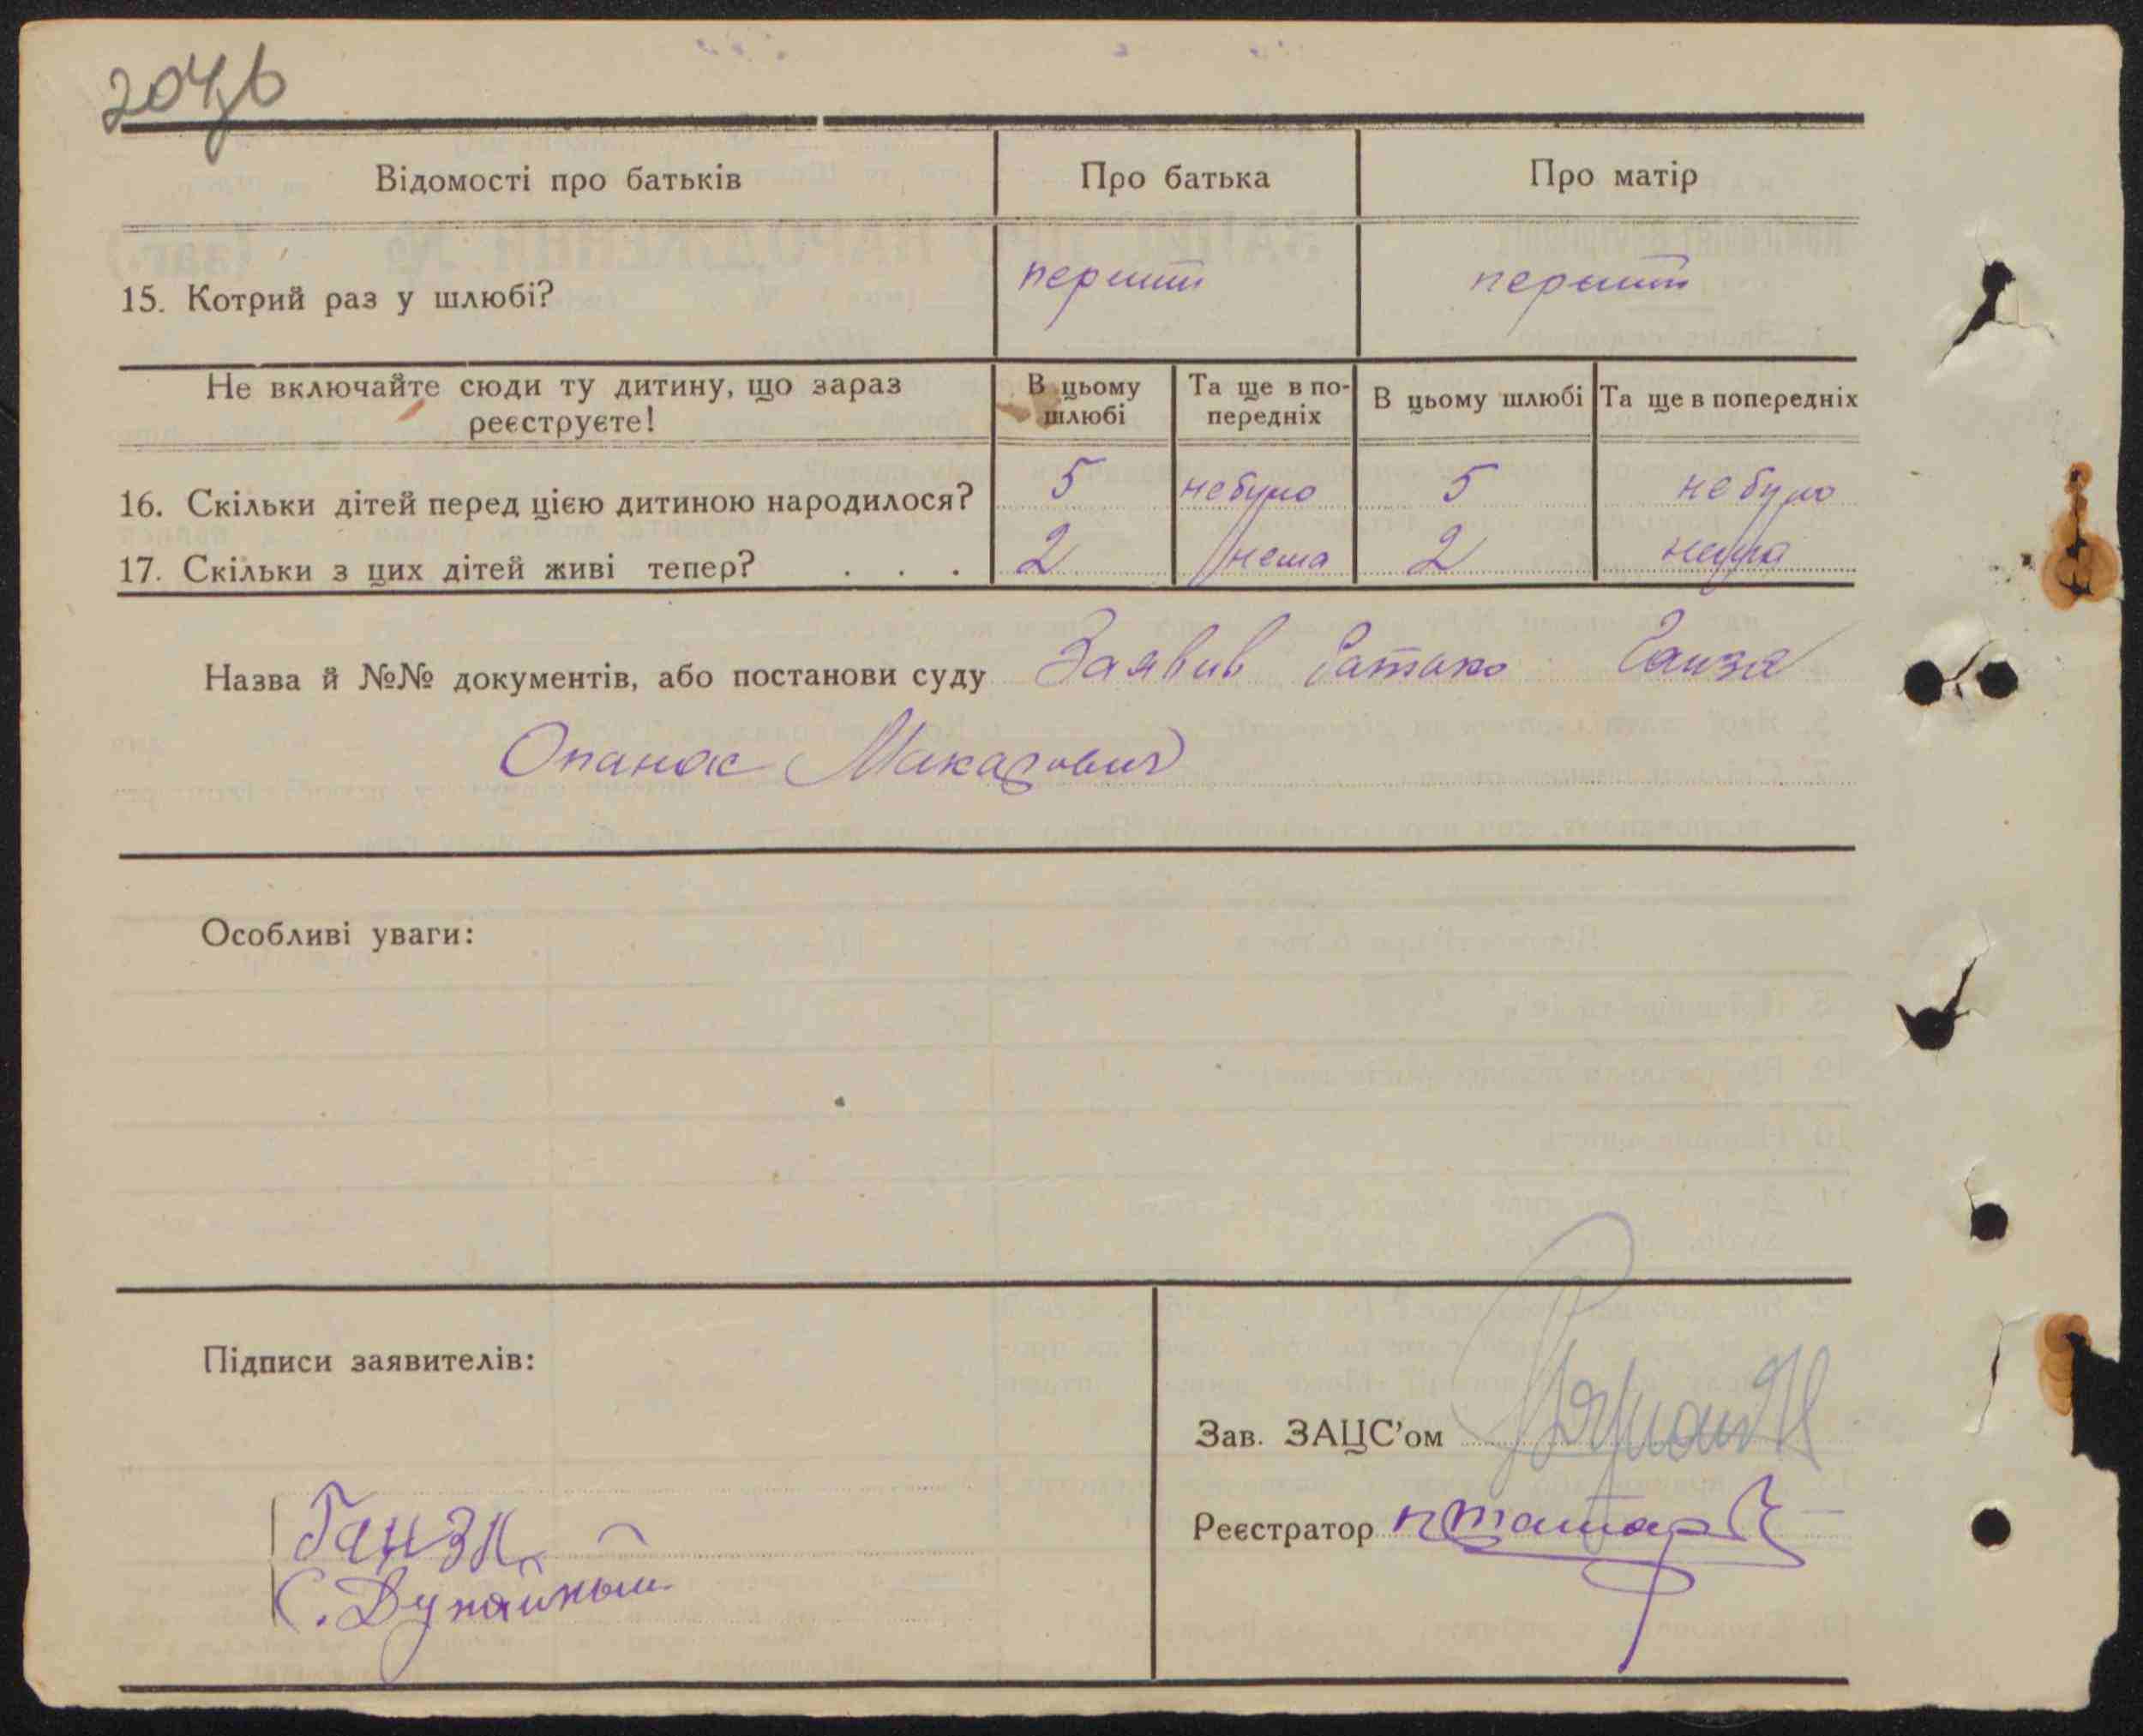 Відомості про батьків Про батька Про матір
15. Котрий раз у шлюбі? перший перший
Не включайте сюди ту дитину, що зараз реєструєте! В цьому шлюбі Та ще в попередніх В цьому шлюбі Та ще в попередніх
16. Скільки дітей перед цією дитиною народилося? 5 небуло 5 не було
17. Скільки з цих дітей живі тепер? . . . 2 нема 2 нема
Назва й №№ документів, або постанови суду Заявив батько Ганза
Опанас Макарович
Особливі уваги:
Підписи заявителів:
Зав. ЗАЦС’ом
Ганза
Реєстратор